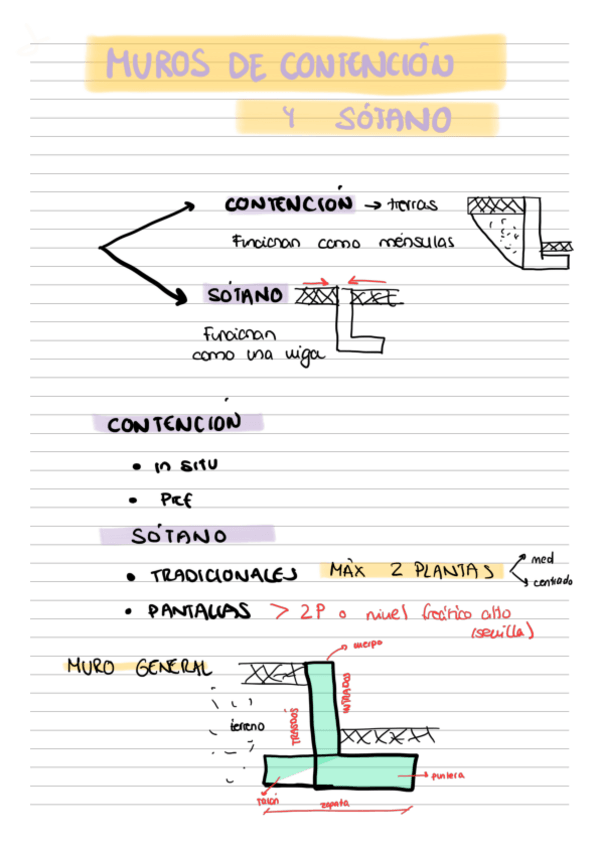 MUROS DE CONTENCIÓN
Y SÓTANO
CONTENCIÓN → tierras
Funcionan como ménsulas
SÓTANO
Funcionan
como una viga
CONTENCIÓN
• IN SITU
• Pref
SÓTANO
• TRADICIONALES MÁX 2 PLANTAS
med
centrado
• PANTALLAS > 2P o nivel freático alto
(sevilla)
MURO GENERAL
cuerpo
terreno
TRASDÓS
INTRADÓS
puntera
talón
zapata